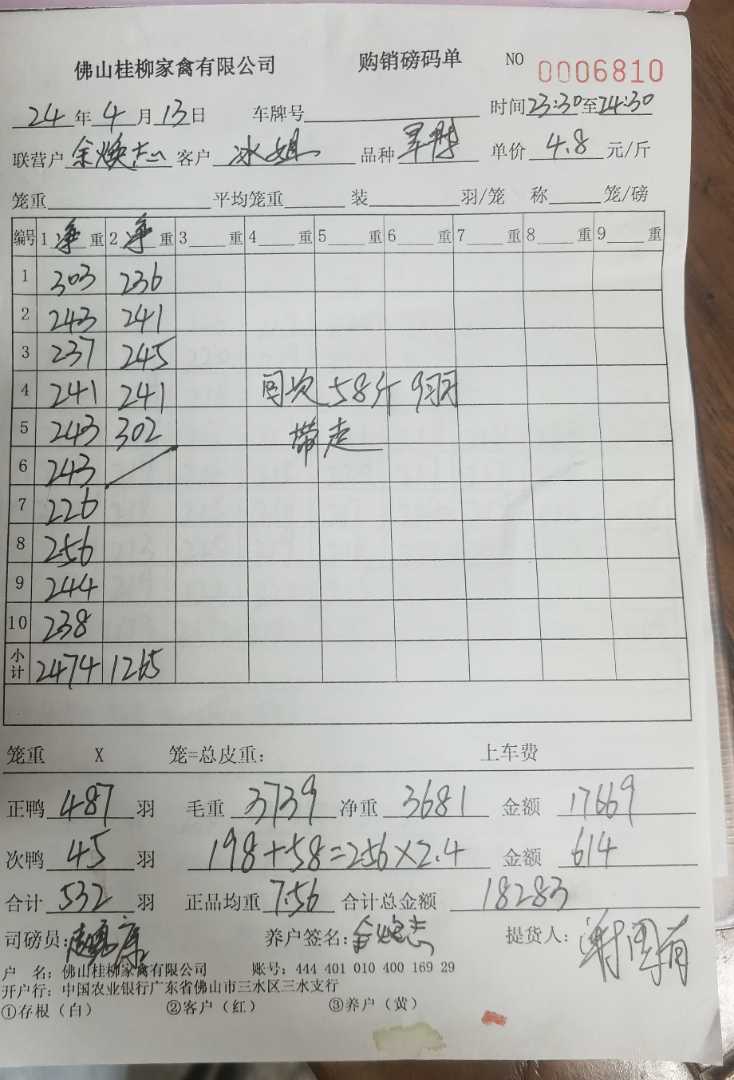 佛山桂柳家禽有限公司 购销磅码单 NO 0006810
24年4月13日 车牌号 时间23:30至24:30
联营户 余焕志 客户 冰姐 品种 单价 4.8 元/斤
笼重 平均笼重 装 羽/笼 称 笼/磅
编号 1 净 重 2 净 重 3 重 4 重 5 重 6 重 7 重 8 重 9 重
1 303 236
2 243 241
3 237 245
4 241 241 因次58斤 9羽
5 243 302 带走
6 243
7 226
8 256
9 244
10 238
小计 2474 1265
笼重 X 笼=总皮重: 上车费
正鸭 487 羽 毛重 3739 净重 3681 金额 17669
次鸭 45 羽 198+58=256×2.4 金额 614
合计 532 羽 正品均重 7.56 合计总金额 18283
司磅员: 养户签名: 余焕志 提货人: 谢国有
户 名: 佛山桂柳家禽有限公司 账号: 444 401 010 400 169 29
开户行: 中国农业银行广东省佛山市三水区三水支行
①存根（白） ②客户（红） ③养户（黄）